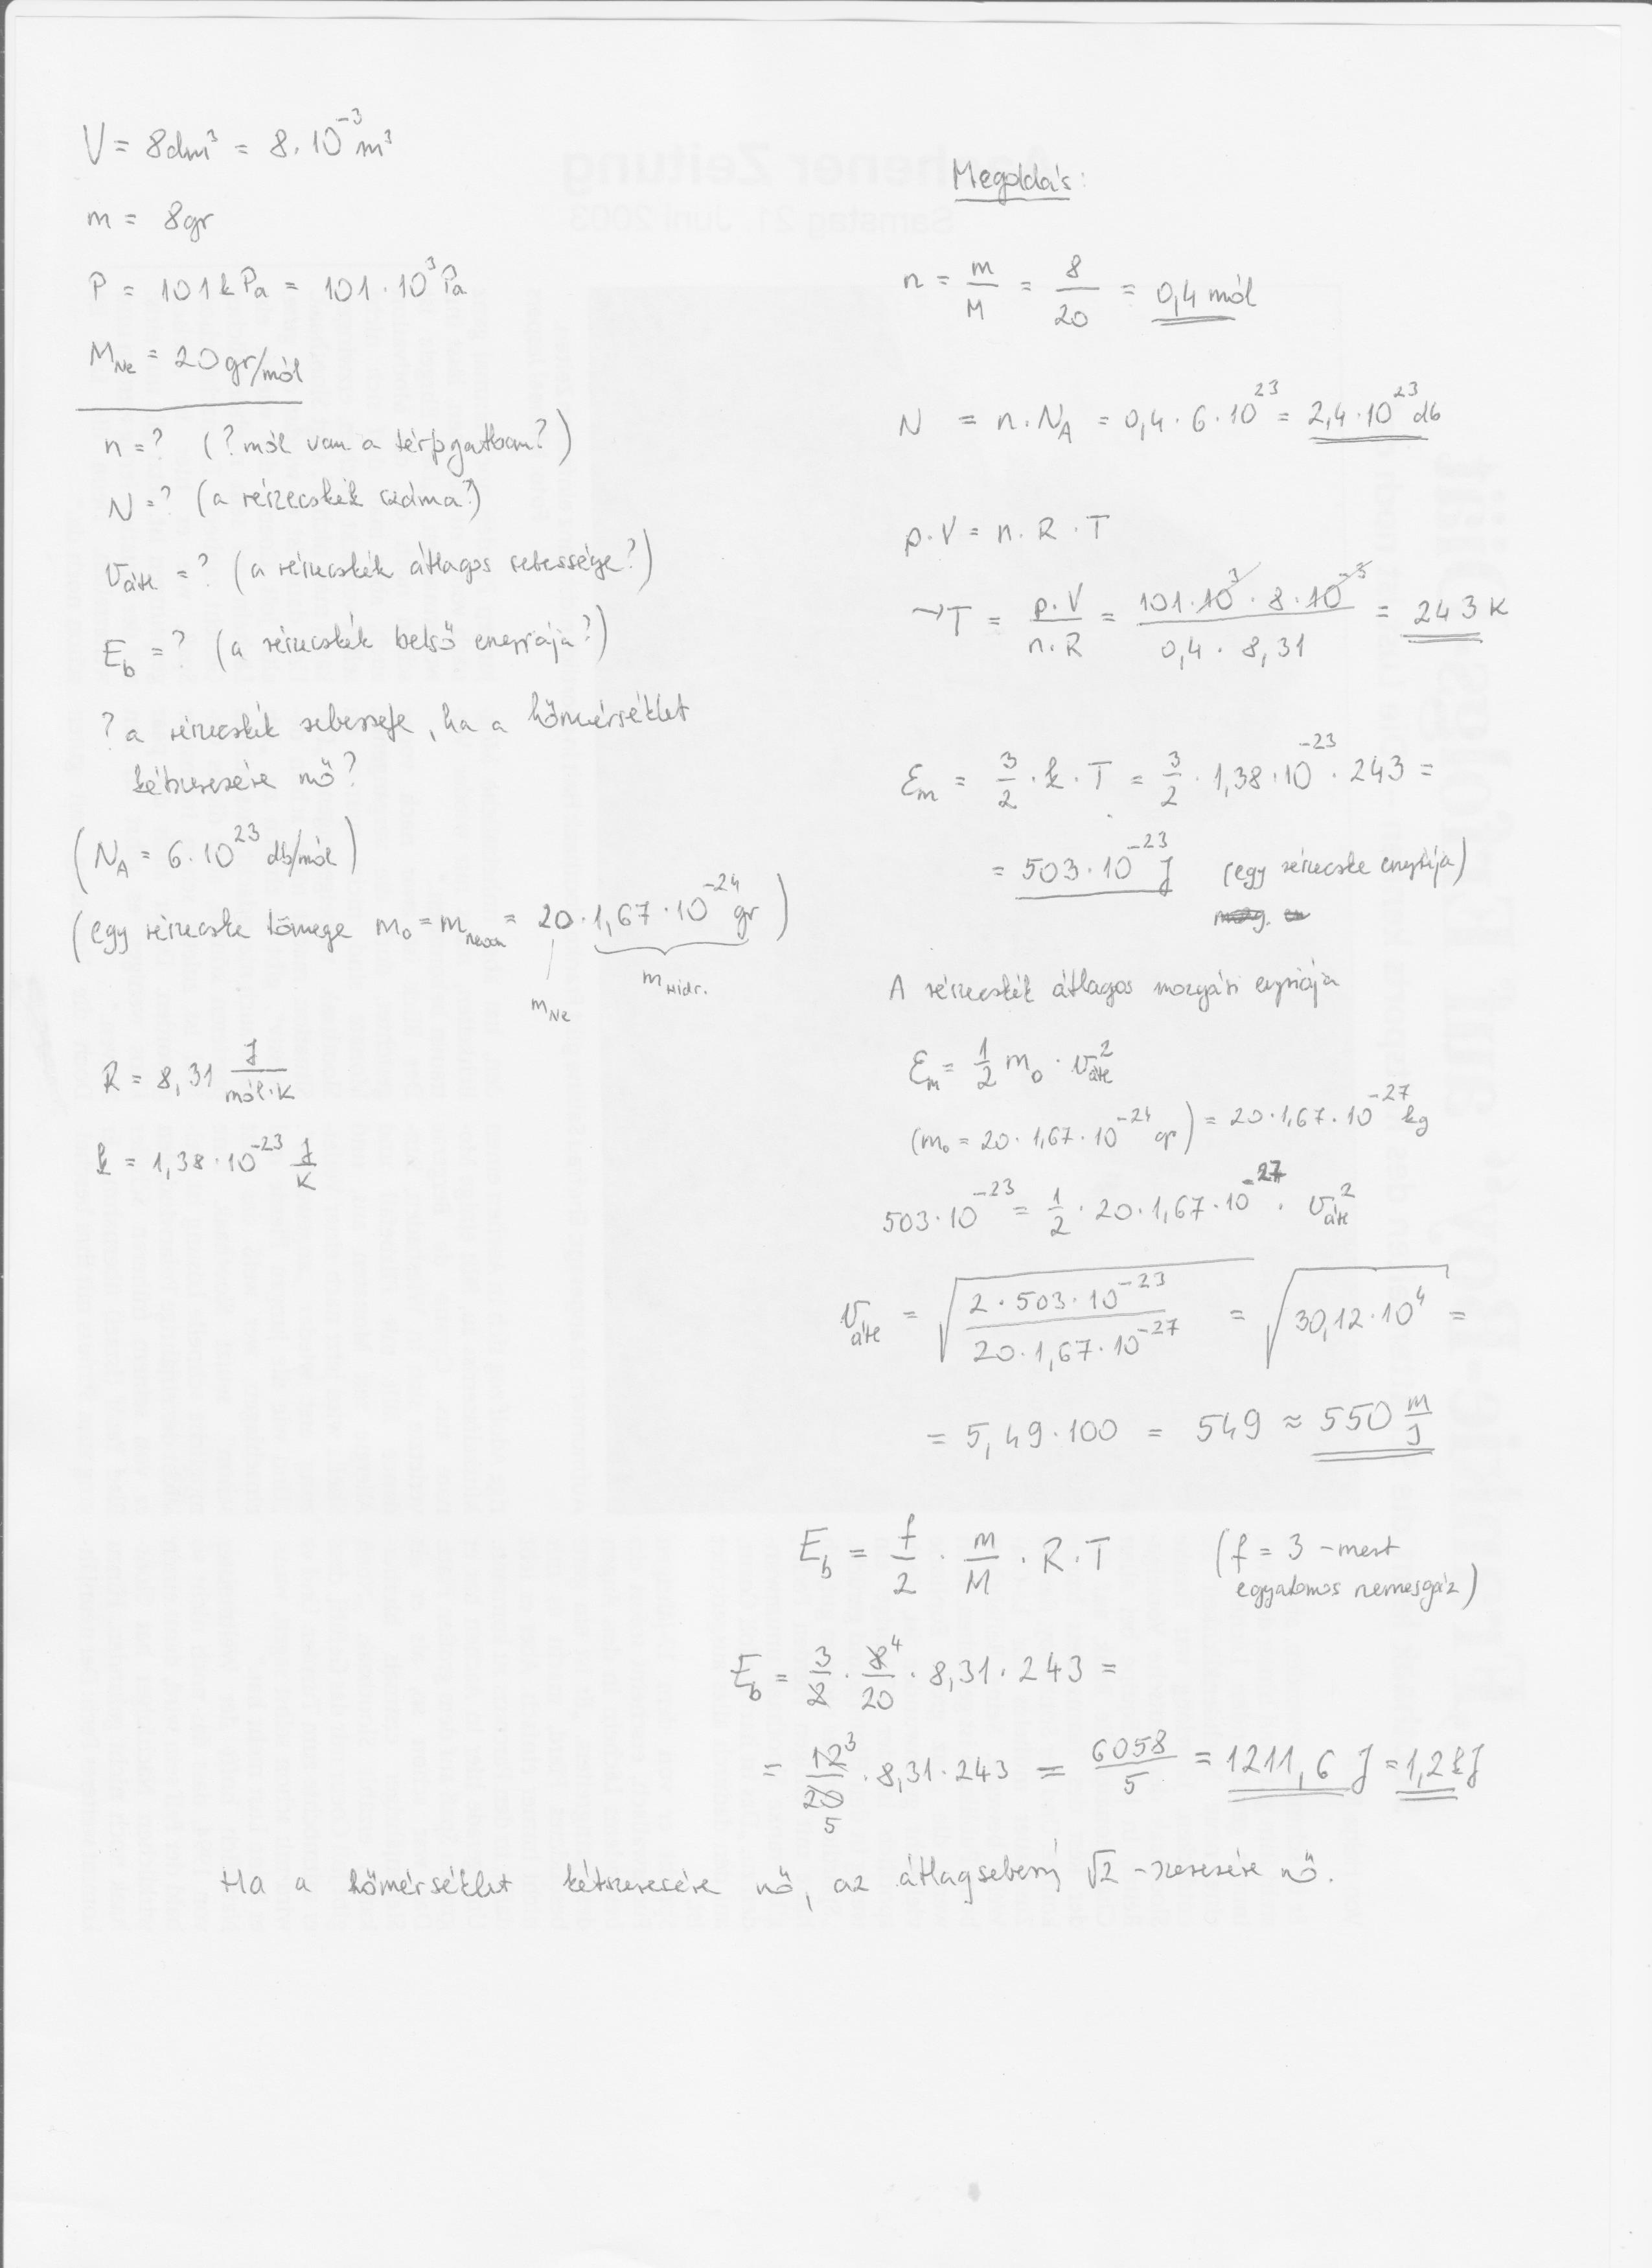 V = 8dm³ = 8·10⁻³ m³
m = 8gr
P = 101 kPa = 101·10³ Pa
M_Ne = 20 gr/mól
n = ? (? mól van a térfogatban?)
N = ? (a részecskék száma?)
v_átl = ? (a részecskék átlagos sebessége?)
E_b = ? (a részecskék belső energiája?)
? a részecskék sebessége, ha a hőmérséklet
kétszeresére nő?
(N_A = 6·10²³ db/mól)
(egy részecske tömege m₀ = m_neon = 20·1,67·10⁻²⁴ gr)
m_Ne m_Hidr.
R = 8,31 J/mól·K
k = 1,38·10⁻²³ J/K
Megoldás:
n = m/M = 8/20 = 0,4 mól
N = n·N_A = 0,4·6·10²³ = 2,4·10²³ db
p·V = n·R·T
→T = p·V/n·R = 101·10³·8·10⁻³/0,4·8,31 = 243 K
Ɛ_m = 3/2·k·T = 3/2·1,38·10⁻²³·243 =
= 503·10⁻²³ J (egy részecske energiája)
A részecskék átlagos mozgási energiája
Ɛ_m = 1/2 m₀·v_átl²
(m₀ = 20·1,67·10⁻²⁴ gr) = 20·1,67·10⁻²⁷ kg
503·10⁻²³ = 1/2·20·1,67·10⁻²⁷·v_átl²
v_átl = √(2·503·10⁻²³/20·1,67·10⁻²⁷) = √(30,12·10⁴) =
= 5,49·100 = 549 ≈ 550 m/s
E_b = f/2·m/M·R·T (f = 3 – mert
egyatomos nemesgáz)
E_b = 3/2·8⁴/20·8,31·243 =
= 12³/20₅·8,31·243 = 6058/5 = 1211,6 J = 1,2 kJ
Ha a hőmérséklet kétszeresére nő, az átlagsebesség √2-szeresére nő.